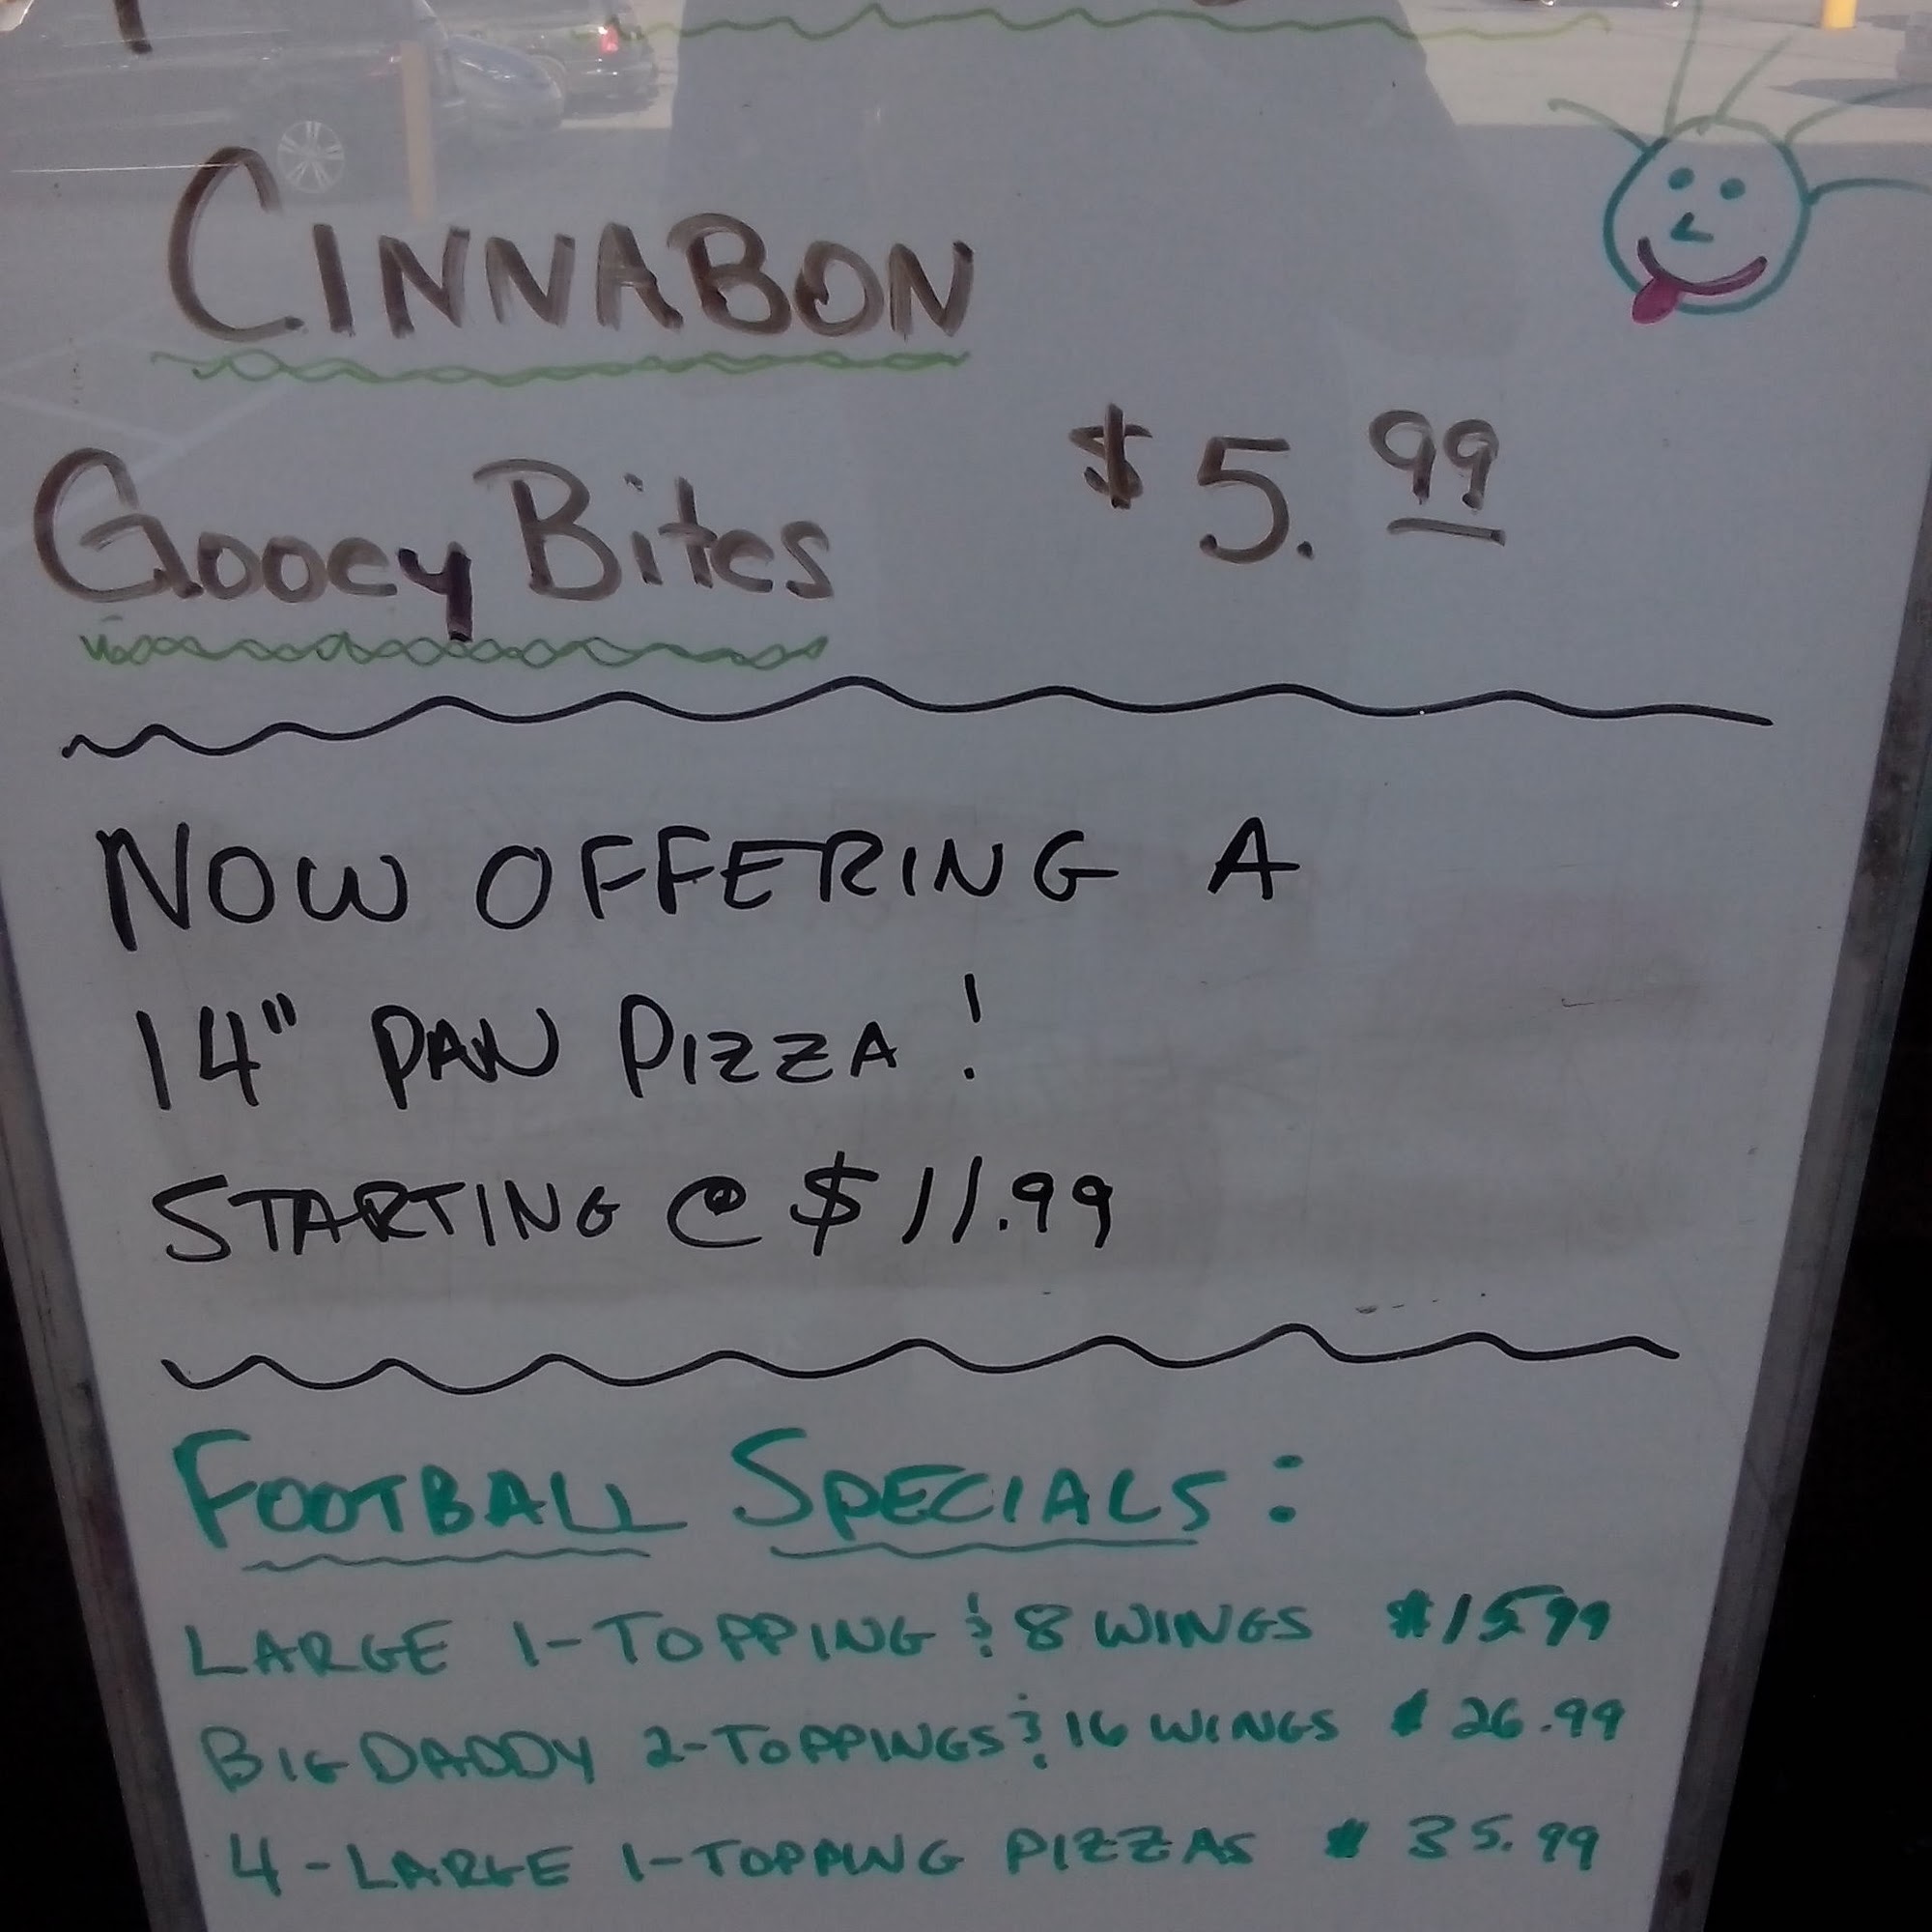 CINNABON
Gooey Bites $5.99
NOW OFFERING A
14" PAN PIZZA!
STARTING @ $11.99
FOOTBALL SPECIALS:
LARGE 1-TOPPING & 8 WINGS $15.99
BIG DADDY 2-TOPPINGS & 16 WINGS $26.99
4-LARGE 1-TOPPING PIZZAS $35.99